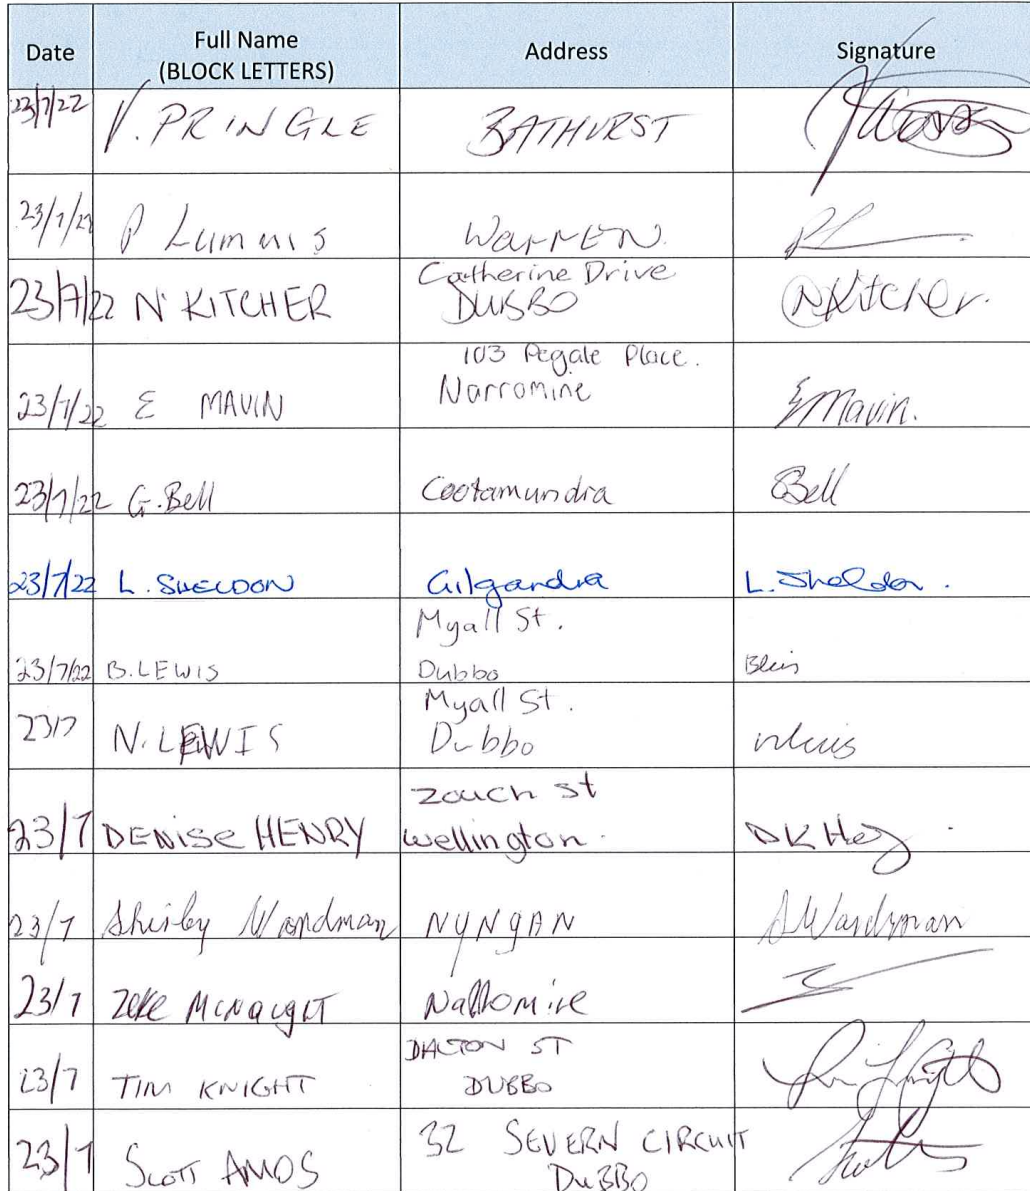 Date Full Name Address Signature
(BLOCK LETTERS)
23/7/22 V. PRINGLE BATHURST
23/7/22 P Lummis WarrEN.
23/7/22 N KITCHER Catherine Drive N Kitcher.
DUBBO
23/7/22 E MAVIN 103 Pegale Place. E Mavin.
Narromine
23/7/22 G. Bell Cootamundra GBell
23/7/22 L. SHELDON Gilgandra L. Sheldon.
23/7/22 B. LEWIS Myall St. Blewis
Dubbo
23/7 N. LEWIS Myall St. nlewis
Dubbo
23/7 DENISE HENRY Zouch st DK Hey
wellington.
23/7 Shirley Wardman NYNGAN S Wardman
23/7 Zeke McNaught Narromine
23/7 TIM KNIGHT DALTON ST
DUBBO
23/7 SCOTT AMOS 32 SEVERN CIRCUIT
DUBBO